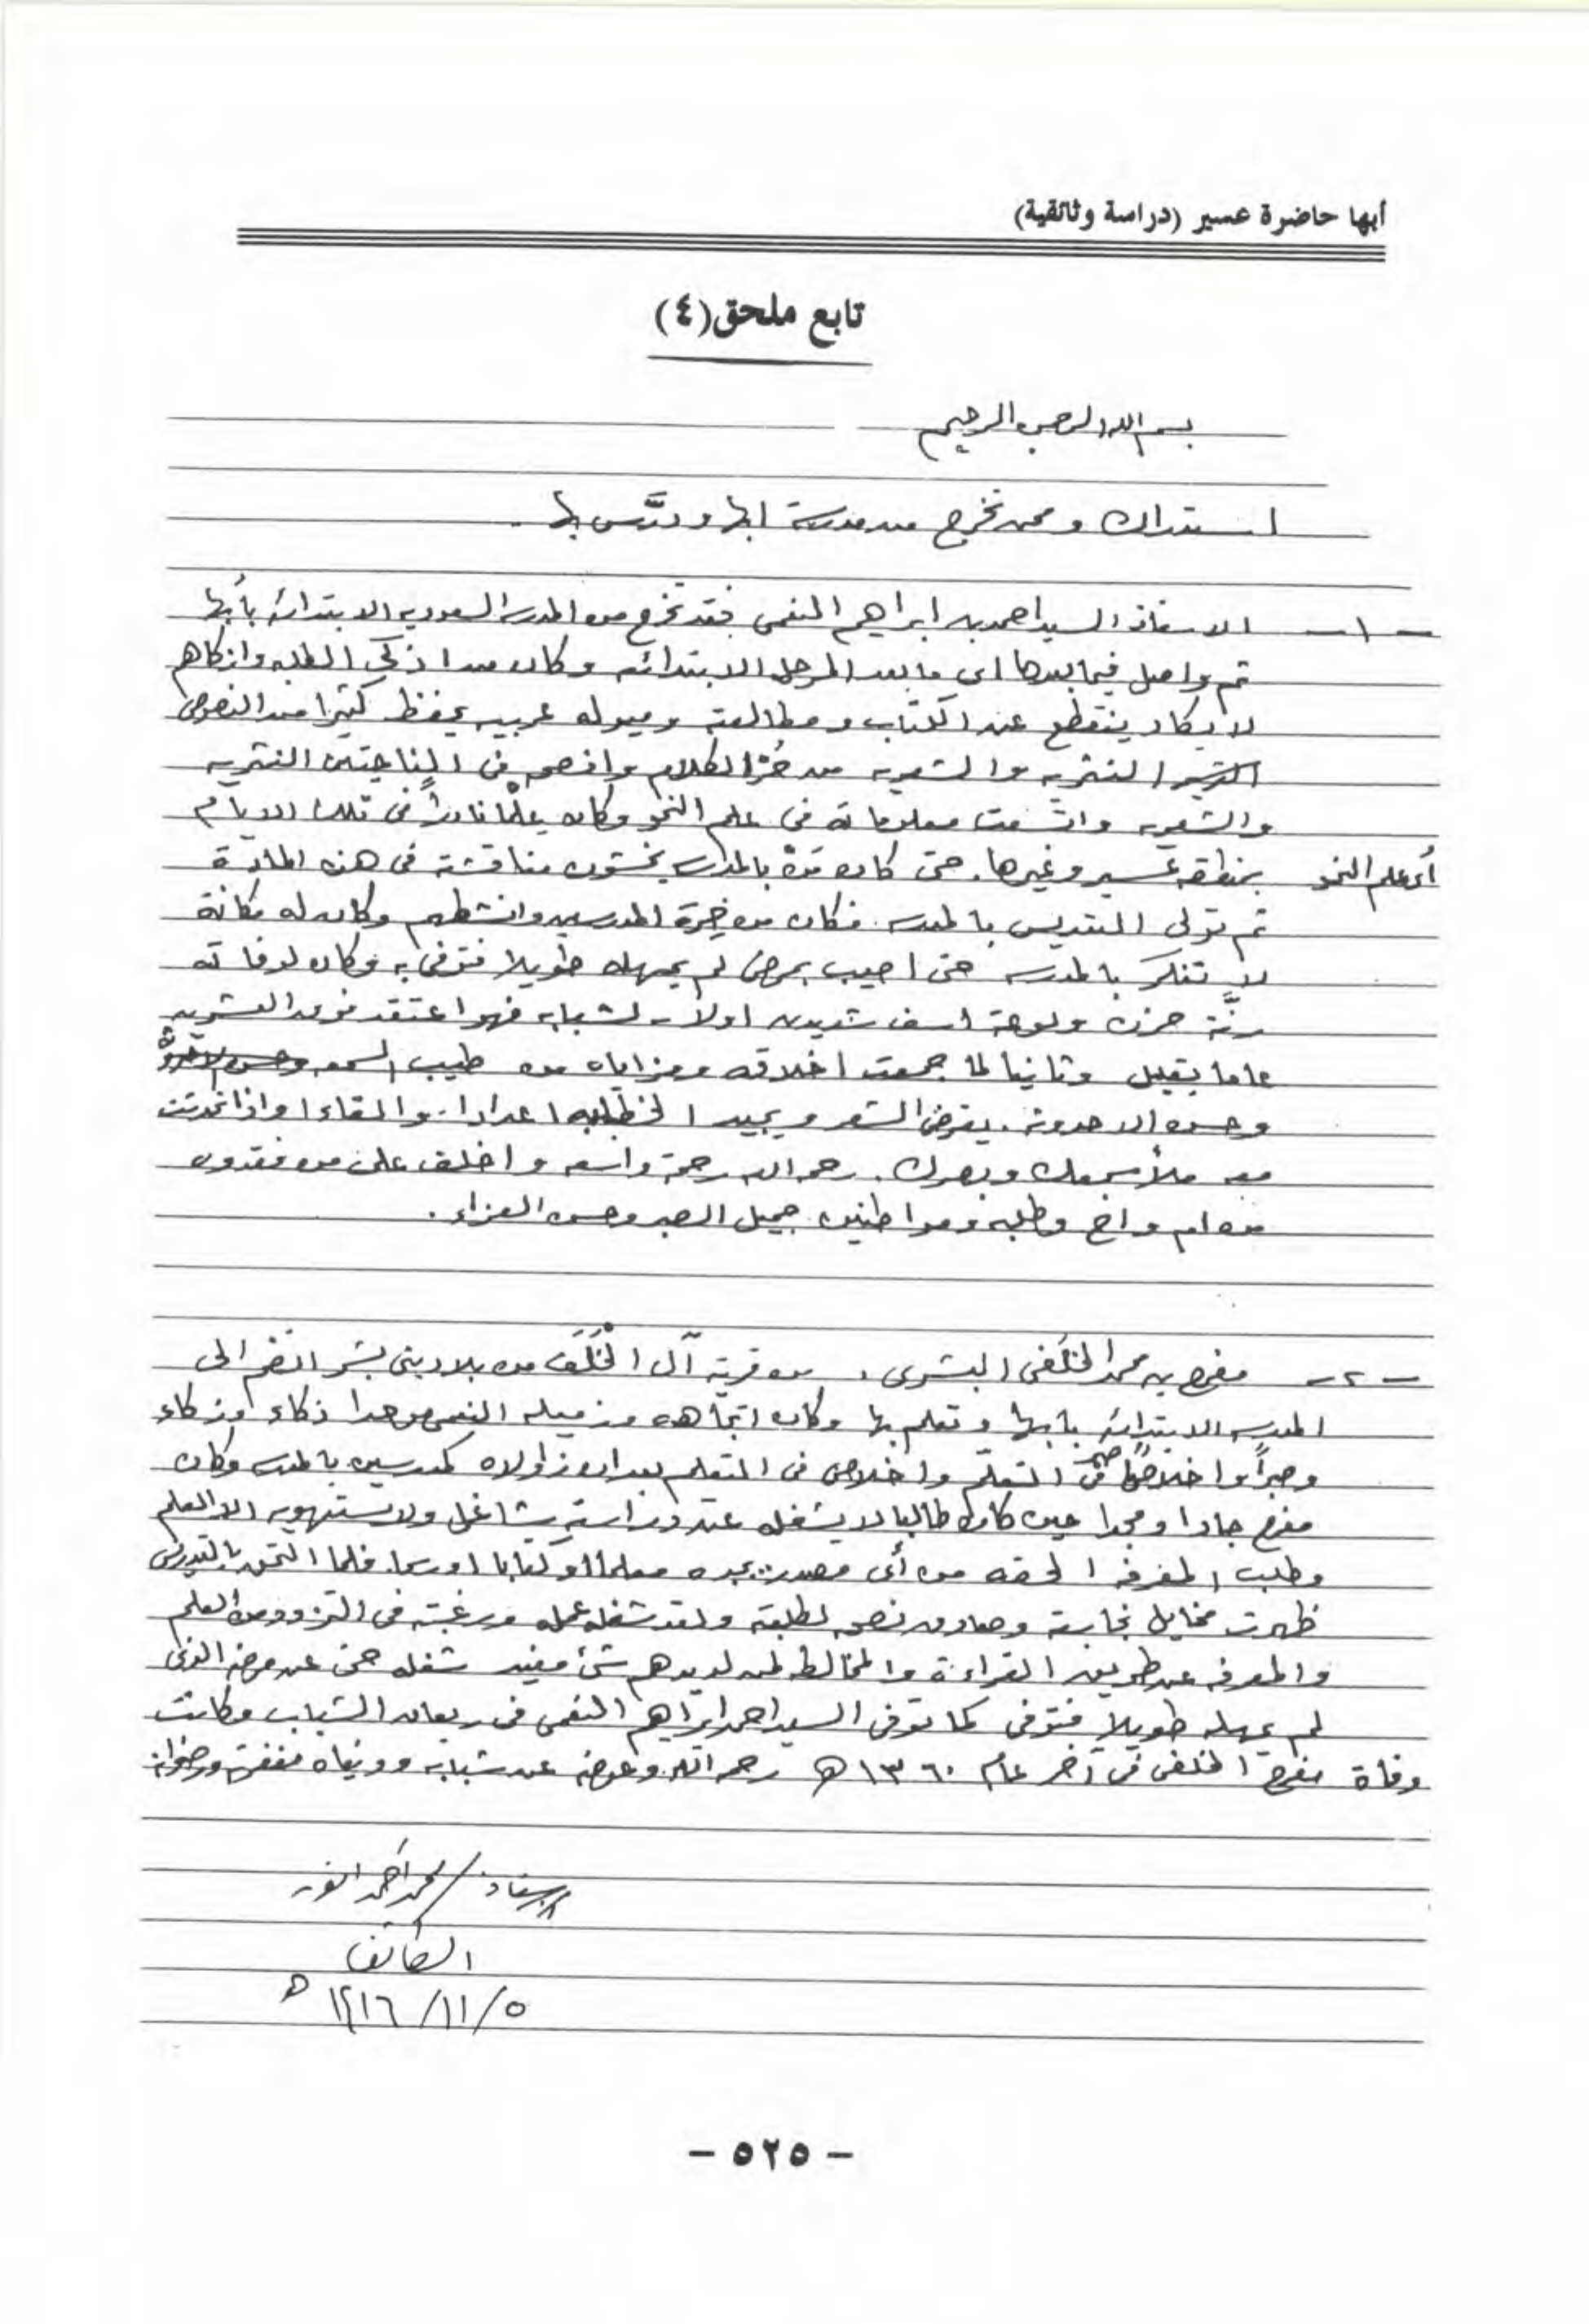 أبها حاضرة عسير (دراسة وثائقية)
تابع ملحق (٤)
بسم الله الرحمن الرحيم
استدراك وممن تخرج من مدرسة ابها ودرَّس بها .
-١- الاستاذ السيد احمد بن ابراهيم النعمى فقد تخرج من المدرسه السعوديه الابتدائيه بأبها
ثم واصل فيما بعدها اى ما بعد المرحله الابتدائيه وكان من اذكى الطلبه وازكاهم
لا يكاد ينقطع عن الكتاب ومطالعته وميوله عربيه يحفظ كثيرا من النصوص
النثريه والشعريه من حُرِّ الكلام وافصحه فى الناحيتين النثريه
والشعريه واتسعت معلوماته فى علم النحو وكان علمًا نادراً فى تلك الايام
أى علم النحو بمنطقة عسير وغيرها. حتى كان بالمدرسه يخشون مناقشته فى هذه المادة
ثم تولى التدريس بالمدرسه. فكان من خيرة المدرسين وانشطهم وكان له مكانة
لا تنكر بالمدرسه حتى اصيب بمرض لم يمهله طويلا فتوفى به وكان لوفاته
رنَّة حزن ولوعة اسف شديدين اولاً لشبابه فهو اعتقد فوق العشرين
عاما بقليل وثانيا لما جمعت اخلاقه ومزاياه من طيب السمعه
وحسن الاحدوثه. يقرض الشعر ويجيد الخطابه اعدادا. والقاءا واذا تحدثت
معه ملأ سمعك وبصرك. رحمه الله رحمة واسعه واخلف على من فقدوه
من ام واخ وطلبه ومواطنين جميل الصبر وحسن العزاء.
-٢- مفرح بن محمد الخَلَفى البشرى، من قرية آل الخَلَف من بلاد بنى بشر انضم الى
المدرسه الابتدائيه بأبها وتعلم بها وكان اتجاهه وزميله النعمى موحدا ذكاء وزكاء
وصبراً واخلاصاً فى التعلّم واخلاص فى التعليم بعد ان زاولاه كمدرسين بالمدرسه وكان
مفرح جادا ومجدا حين كان طالبا لا يشغله عن دراسته شاغل ولا يستهويه الا العلم
وطلب المعرفه الحقه من أى مصدر يجده معلما او كتابا او رسما. فلما التحق بالتدريس
ظهرت مخايل نجابته وصادق نصحه لطلبته ولقد شغله عمله ورغبته فى التزود من العلم
والمعرفه عن طريق القراءة والمخالطه لمن لديهم شئ مفيد شغله حتى عن مرضه الذى
لم يمهله طويلاً فتوفى كما توفى السيد احمد ابراهيم النعمى فى ريعان الشباب وكانت
وفاة مفرح الخلفى فى آخر عام ١٣٦٠ هـ رحمه الله وعوضه عن شبابه ودنياه مغفرته ورضوانه
الاستاذ / محمد احمد انور
الطائف
٥/ ١١/ ١٤١٦ هـ
- ٥٢٥ -